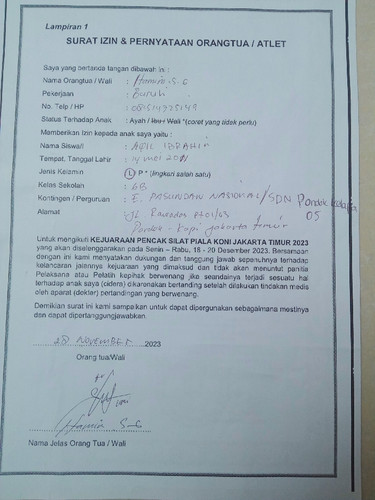 Lampiran 1
SURAT IZIN & PERNYATAAN ORANGTUA / ATLET
Saya yang bertanda tangan dibawah ini :
Nama Orangtua / Wali : Hamim S-G
Pekerjaan : Buruh
No. Telp / HP :
Status Terhadap Anak : Ayah / Ibu / Wali *(coret yang tidak perlu)
Memberikan Izin kepada anak saya yaitu :
Nama Siswa/i : AQIL IBRAHIM
Tempat, Tanggal Lahir : 14 mei 2011
Jenis Kelamin : L P * (lingkari salah satu)
Kelas Sekolah : 6B
Kontingen / Perguruan : E. PASUNDAN NASIONAL / SDN Pondok kelapa 05
Alamat : JL.
Pondok - Kopi jakarta timur
Untuk mengikuti KEJUARAAN PENCAK SILAT PIALA KONI JAKARTA TIMUR 2023
yang akan diselenggarakan pada Senin – Rabu, 18 - 20 Desember 2023. Bersamaan
dengan ini kami menyatakan dukungan dan tanggung jawab sepenuhnya terhadap
kelancaran jalannya kejuaraan yang dimaksud dan tidak akan menuntut panitia
Pelaksana atau Pelatih kepihak berwenang jika seandainya terjadi sesuatu hal
terhadap anak saya (cidera) dikarenakan bertanding setelah dilakukan tindakan medis
oleh aparat (dokter) pertandingan yang berwenang.
Demikian surat ini kami sampaikan untuk dapat dipergunakan sebagaimana mestinya
dan dapat dipertanggungjawabkan
28 NOVEMBER 2023
Orang tua/Wali
Hamim S-G
Nama Jelas Orang Tua / Wali